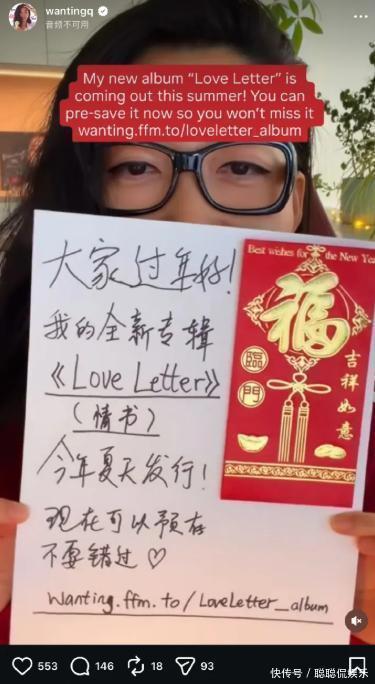 wantingq
音频不可用
My new album "Love Letter" is
coming out this summer! You can
pre-save it now so you won't miss it
wanting.ffm.to/loveletter_album
大家过年好!
我的全新专辑
《Love Letter》
(情书)
今年夏天发行!
现在可以预存
不要错过♡
Wanting.ffm.to/LoveLetter_album
Best wishes for the New Year
福
臨
門
吉祥如意
553
146
18
93
快传号 / 聪聪侃娱乐